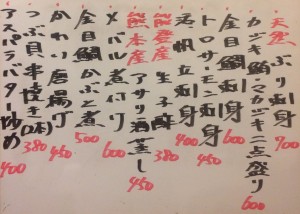 天然ぶり刺身 900
カジキ鮪マカジキ二点盛り 600
金目鯛刺身 600
トロサーモン刺身 400
帆立刺身
産生子 380
熊本産アサリ酒蒸し 450
メバル煮付け 600
金目鯛かぶと煮 500
かれい唐揚げ 450
つぶ貝串焼き(2本) 380
アスパラバター炒め 400